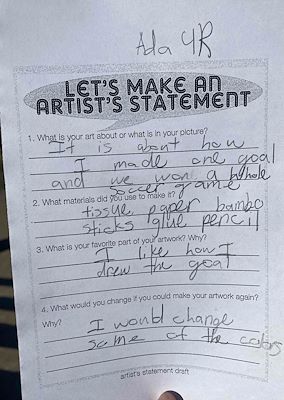 Ada 4R
LET'S MAKE AN
ARTIST'S STATEMENT
1. What is your art about or what is in your picture?
It is about how
I made one goal
and we won a whole
soccer game
2. What materials did you use to make it?
tissue paper bambo
sticks glue pencil
3. What is your favorite part of your artwork? Why?
I like how I
drew the goal
4. What would you change if you could make your artwork again?
Why?
I would change
some of the colors
artist's statement draft